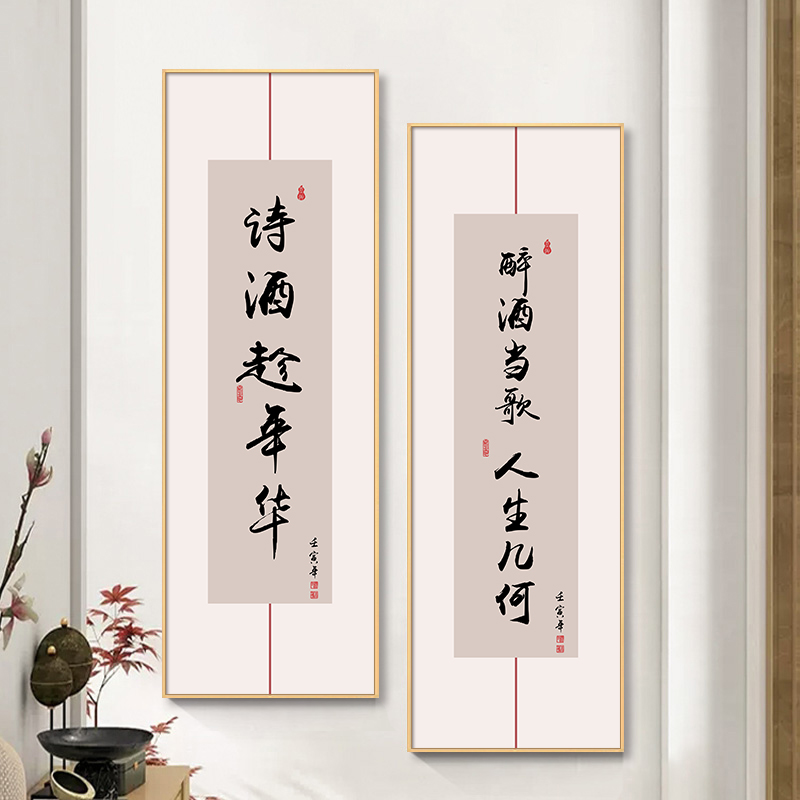 诗酒趁年华
壬寅年
醉酒当歌 人生几何
壬寅年